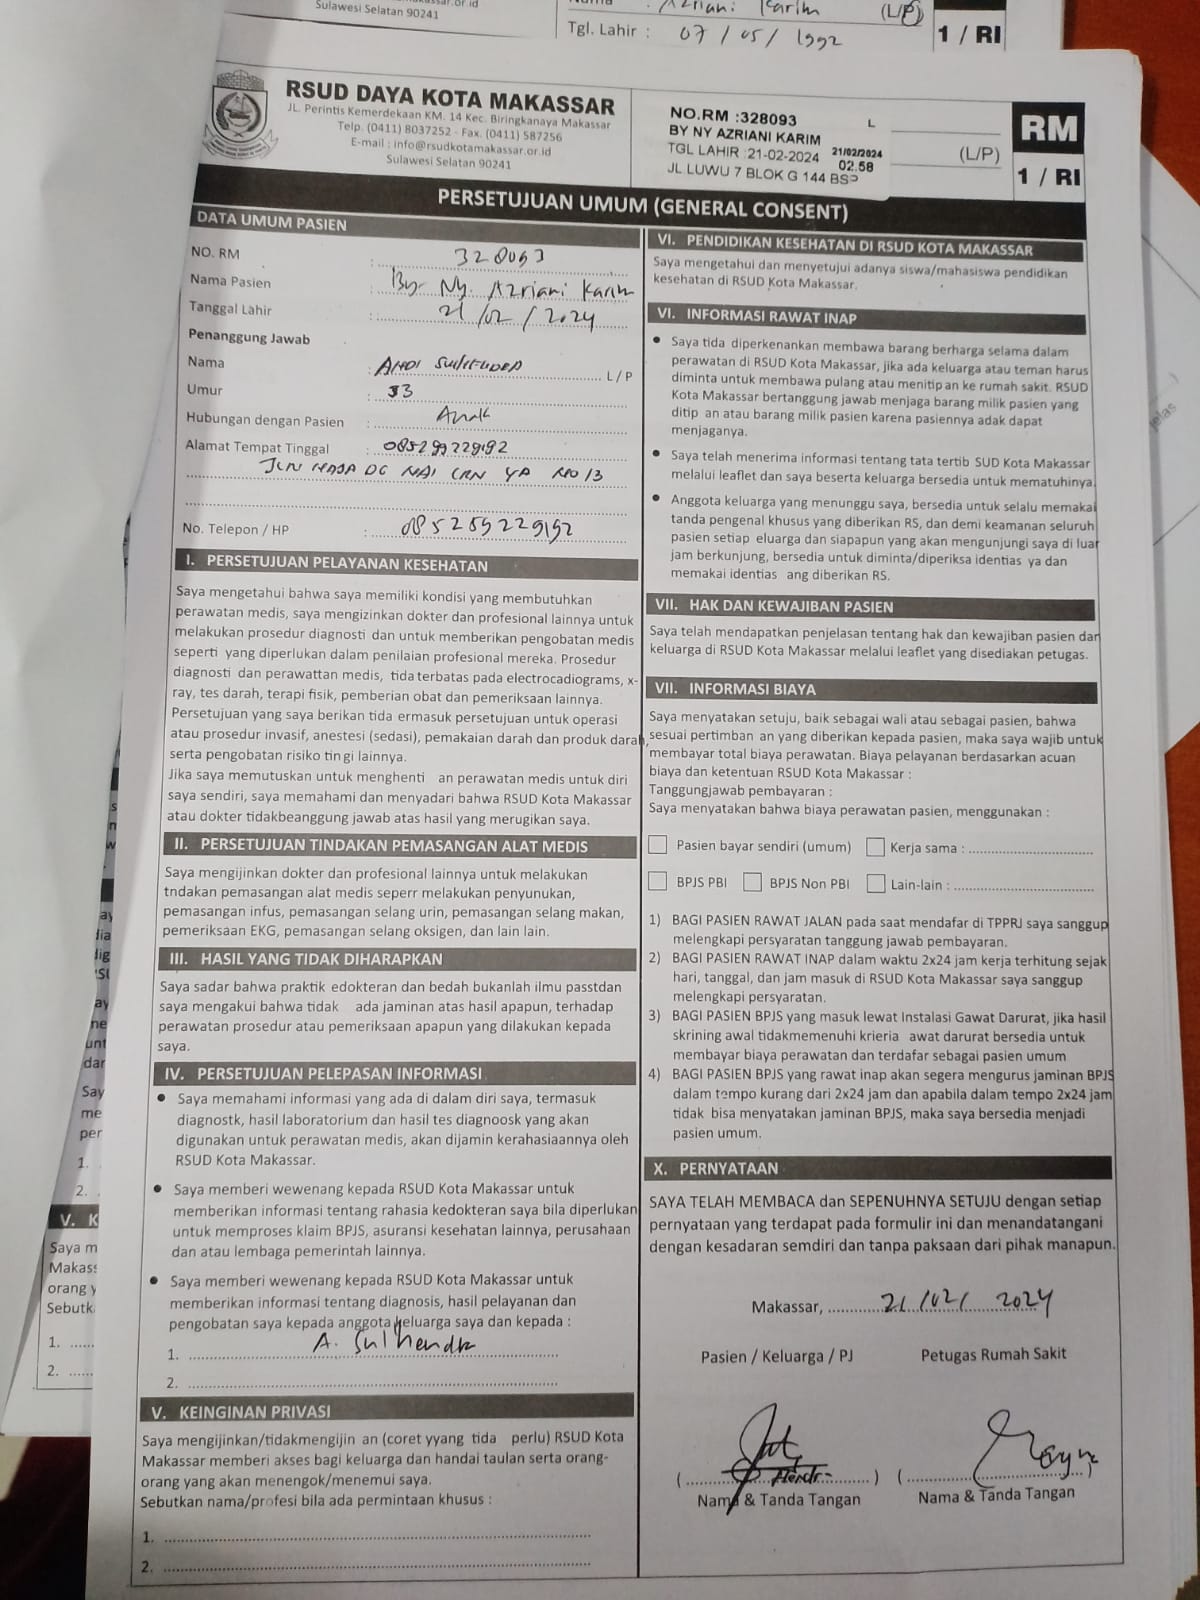 Sulawesi Selatan 90241
Azriani Karim (L/P)
Tgl. Lahir : 07 / 05 / 1992
1 / RI
RSUD DAYA KOTA MAKASSAR
JL. Perintis Kemerdekaan KM. 14 Kec. Biringkanaya Makassar
Telp. (0411) 8037252 - Fax. (0411) 587256
E-mail : info@rsudkotamakassar.or.id
Sulawesi Selatan 90241
NO.RM :328093 L
BY NY AZRIANI KARIM
TGL LAHIR :21-02-2024 21/02/2024
02.58
JL LUWU 7 BLOK G 144 BSP
(L/P)
RM
1 / RI
PERSETUJUAN UMUM (GENERAL CONSENT)
DATA UMUM PASIEN
NO. RM : 328093
Nama Pasien : By. Ny. Azriani Karim
Tanggal Lahir : 21 / 02 / 2024
Penanggung Jawab
Nama : ANDI L / P
Umur : 33
Hubungan dengan Pasien : Anak
Alamat Tempat Tinggal : 085299229192
No. Telepon / HP : 085259229192
I. PERSETUJUAN PELAYANAN KESEHATAN
Saya mengetahui bahwa saya memiliki kondisi yang membutuhkan
perawatan medis, saya mengizinkan dokter dan profesional lainnya untuk
melakukan prosedur diagnosti dan untuk memberikan pengobatan medis
seperti yang diperlukan dalam penilaian profesional mereka. Prosedur
diagnosti dan perawattan medis, tida terbatas pada electrocadiograms, x-
ray, tes darah, terapi fisik, pemberian obat dan pemeriksaan lainnya.
Persetujuan yang saya berikan tida ermasuk persetujuan untuk operasi
atau prosedur invasif, anestesi (sedasi), pemakaian darah dan produk darah,
serta pengobatan risiko tin gi lainnya.
Jika saya memutuskan untuk menghenti an perawatan medis untuk diri
saya sendiri, saya memahami dan menyadari bahwa RSUD Kota Makassar
atau dokter tidakbeanggung jawab atas hasil yang merugikan saya.
II. PERSETUJUAN TINDAKAN PEMASANGAN ALAT MEDIS
Saya mengijinkan dokter dan profesional lainnya untuk melakukan
tndakan pemasangan alat medis seperr melakukan penyunukan,
pemasangan infus, pemasangan selang urin, pemasangan selang makan,
pemeriksaan EKG, pemasangan selang oksigen, dan lain lain.
III. HASIL YANG TIDAK DIHARAPKAN
Saya sadar bahwa praktik edokteran dan bedah bukanlah ilmu passtdan
saya mengakui bahwa tidak ada jaminan atas hasil apapun, terhadap
perawatan prosedur atau pemeriksaan apapun yang dilakukan kepada
saya.
IV. PERSETUJUAN PELEPASAN INFORMASI
• Saya memahami informasi yang ada di dalam diri saya, termasuk
diagnostk, hasil laboratorium dan hasil tes diagnoosk yang akan
digunakan untuk perawatan medis, akan dijamin kerahasiaannya oleh
RSUD Kota Makassar.
• Saya memberi wewenang kepada RSUD Kota Makassar untuk
memberikan informasi tentang rahasia kedokteran saya bila diperlukan
untuk memproses klaim BPJS, asuransi kesehatan lainnya, perusahaan
dan atau lembaga pemerintah lainnya.
• Saya memberi wewenang kepada RSUD Kota Makassar untuk
memberikan informasi tentang diagnosis, hasil pelayanan dan
pengobatan saya kepada anggota keluarga saya dan kepada :
1. A. Sulhendra
2.
V. KEINGINAN PRIVASI
Saya mengijinkan/tidakmengijin an (coret yyang tida perlu) RSUD Kota
Makassar memberi akses bagi keluarga dan handai taulan serta orang-
orang yang akan menengok/menemui saya.
Sebutkan nama/profesi bila ada permintaan khusus :
1.
2.
VI. PENDIDIKAN KESEHATAN DI RSUD KOTA MAKASSAR
Saya mengetahui dan menyetujui adanya siswa/mahasiswa pendidikan
kesehatan di RSUD Kota Makassar.
VI. INFORMASI RAWAT INAP
• Saya tida diperkenankan membawa barang berharga selama dalam
perawatan di RSUD Kota Makassar, jika ada keluarga atau teman harus
diminta untuk membawa pulang atau menitip an ke rumah sakit. RSUD
Kota Makassar bertanggung jawab menjaga barang milik pasien yang
ditip an atau barang milik pasien karena pasiennya adak dapat
menjaganya.
• Saya telah menerima informasi tentang tata tertib SUD Kota Makassar
melalui leaflet dan saya beserta keluarga bersedia untuk mematuhinya.
• Anggota keluarga yang menunggu saya, bersedia untuk selalu memakai
tanda pengenal khusus yang diberikan RS, dan demi keamanan seluruh
pasien setiap eluarga dan siapapun yang akan mengunjungi saya di luar
jam berkunjung, bersedia untuk diminta/diperiksa identias ya dan
memakai identias ang diberikan RS.
VII. HAK DAN KEWAJIBAN PASIEN
Saya telah mendapatkan penjelasan tentang hak dan kewajiban pasien dan
keluarga di RSUD Kota Makassar melalui leaflet yang disediakan petugas.
VII. INFORMASI BIAYA
Saya menyatakan setuju, baik sebagai wali atau sebagai pasien, bahwa
sesuai pertimban an yang diberikan kepada pasien, maka saya wajib untuk
membayar total biaya perawatan. Biaya pelayanan berdasarkan acuan
biaya dan ketentuan RSUD Kota Makassar :
Tanggungjawab pembayaran :
Saya menyatakan bahwa biaya perawatan pasien, menggunakan :
Pasien bayar sendiri (umum) Kerja sama :
BPJS PBI BPJS Non PBI Lain-lain :
1) BAGI PASIEN RAWAT JALAN pada saat mendafar di TPPRJ saya sanggup
melengkapi persyaratan tanggung jawab pembayaran.
2) BAGI PASIEN RAWAT INAP dalam waktu 2x24 jam kerja terhitung sejak
hari, tanggal, dan jam masuk di RSUD Kota Makassar saya sanggup
melengkapi persyaratan.
3) BAGI PASIEN BPJS yang masuk lewat Instalasi Gawat Darurat, jika hasil
skrining awal tidakmemenuhi krieria awat darurat bersedia untuk
membayar biaya perawatan dan terdafar sebagai pasien umum
4) BAGI PASIEN BPJS yang rawat inap akan segera mengurus jaminan BPJS
dalam tempo kurang dari 2x24 jam dan apabila dalam tempo 2x24 jam
tidak bisa menyatakan jaminan BPJS, maka saya bersedia menjadi
pasien umum.
X. PERNYATAAN
SAYA TELAH MEMBACA dan SEPENUHNYA SETUJU dengan setiap
pernyataan yang terdapat pada formulir ini dan menandatangani
dengan kesadaran semdiri dan tanpa paksaan dari pihak manapun.
Makassar, 21 / 02 / 2024
Pasien / Keluarga / PJ Petugas Rumah Sakit
Nama & Tanda Tangan Nama & Tanda Tangan